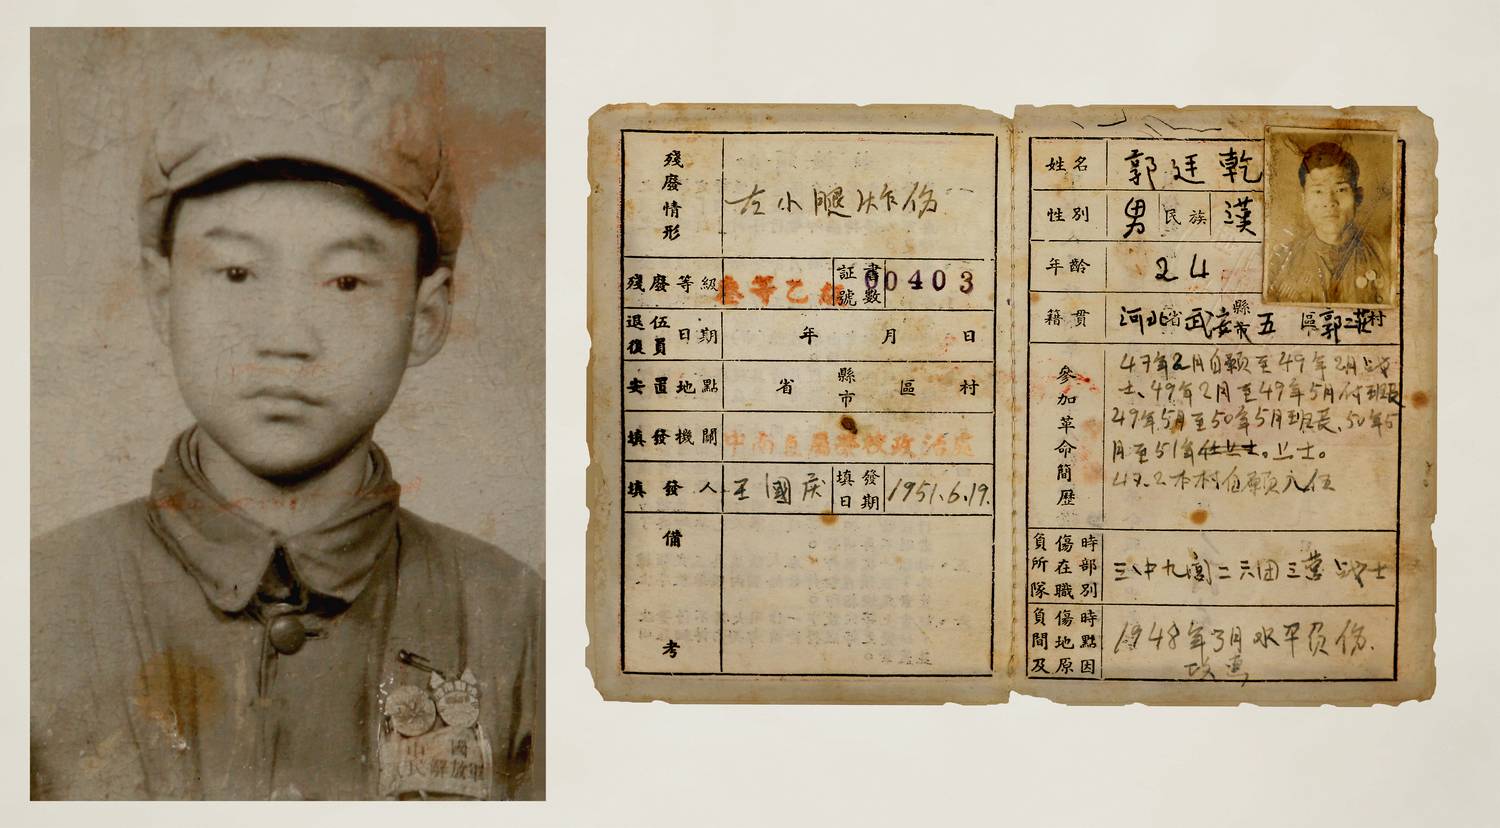 中國
人民解放軍
殘廢情形
左小腿炸伤
殘廢等級 叁等乙級 証書號數 00403
退伍復員日期 年 月 日
安置地點 省 縣市 區 村
填發機關 中南直屬榮校政治处
填發人 王國庆 填發日期 1951.6.19.
備考
姓名 郭廷乾
性別 男 民族 漢
年齡 24
籍貫 河北省武安縣市五區郭二庄村
參加革命簡歷
47年2月自願至49年2月战
士、49年2月至49年5月付班長
49年5月至50年5月班長、50年5
月至51年 。
47.2本村自願入伍
負傷時所在部隊職別 九 二六团三营战士
負傷時間地點及原因 1948年3月 负伤.